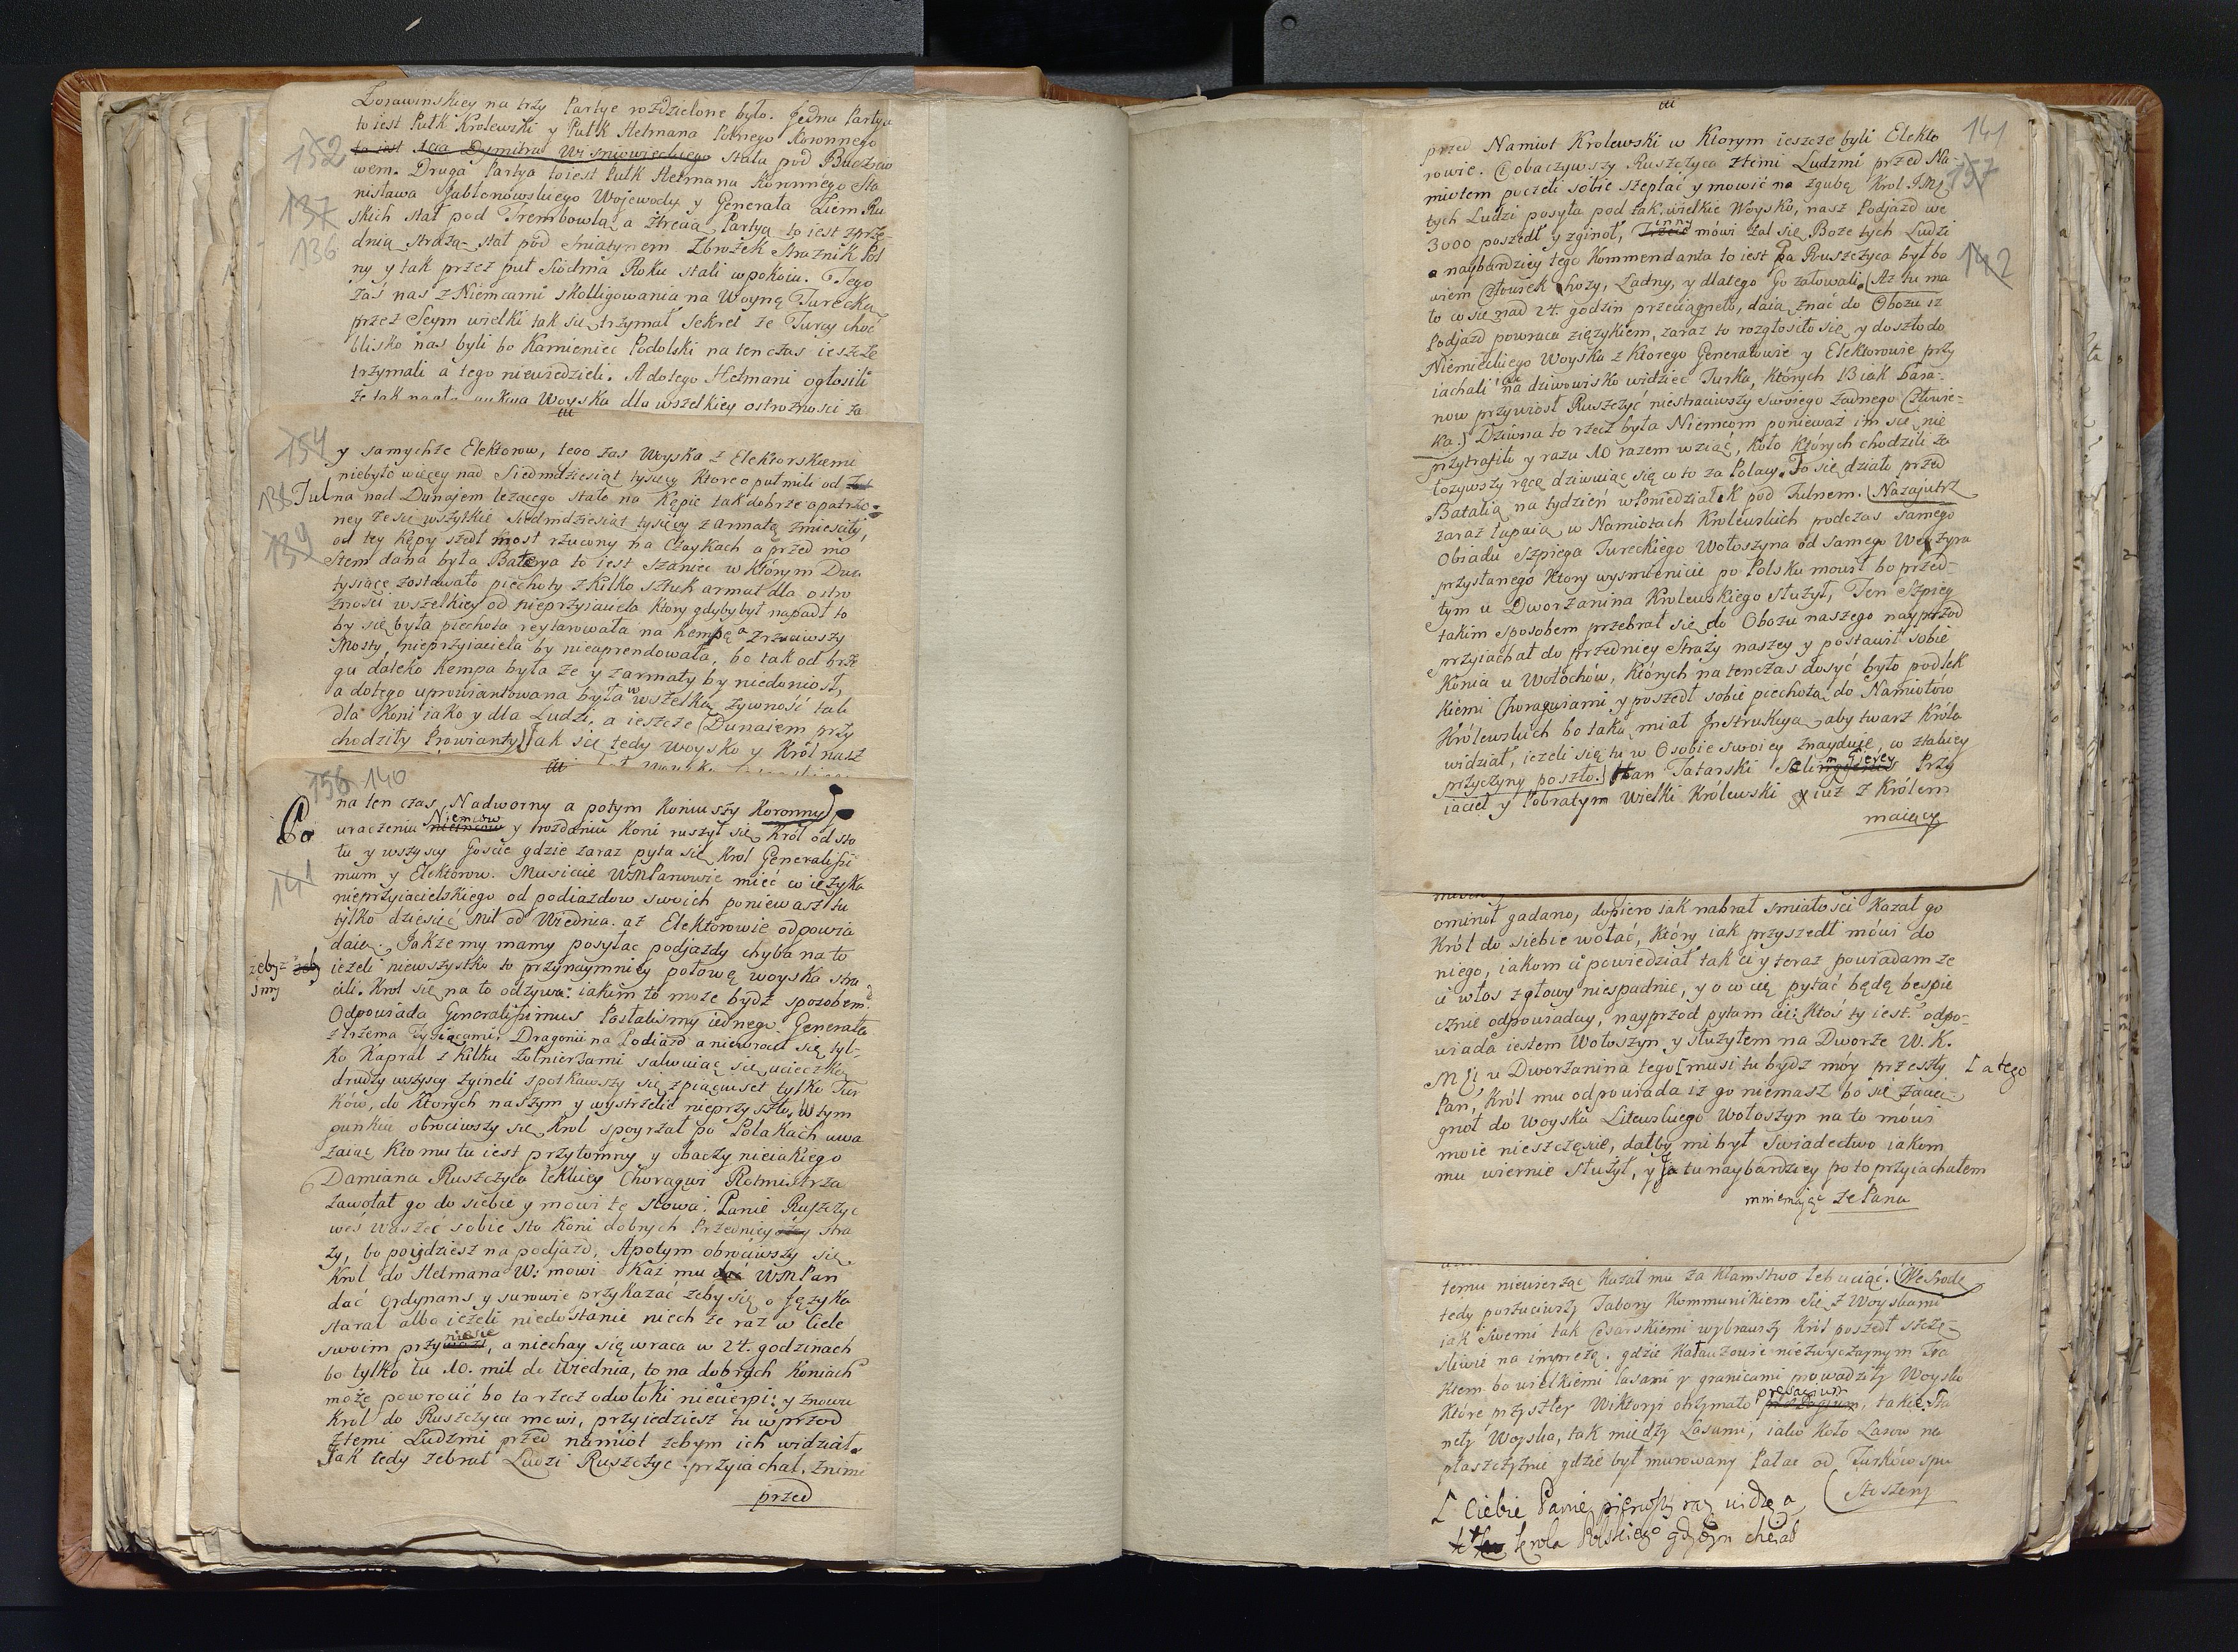 152
137
136
Zorawinskiey na trzy Partye rozdzielone było. Jedna Partya
to iest Pułk Krolewski y Pułk Hetmana Polnego Koronnego
to iest Xcia Dymitra Wisniowieckiego stała pod Buczao
wem. Druga Partya to iest Pułk Hetmana Koronnego Sta
nisława Jabłonowskiego Wojewody y Generała Ziem Ru
skich stał pod Trembowlą, a Trecia Partya to iest z prze-
dnią strażą stał pod Sniatynem Zbrożek Straznik Pol
ny y tak przez puł Siodma Roku stali w pokoiu. Tego
zaś nas z Niemcami skolligowania na Woynę Turecką
przez Seym wielki tak się trzymał Sekret że Turcy choć
blisko nas byli bo Kamieniec Podolski na ten czas ieszcze
trzymali a tego niewiedzieli. A do tego Hetmani ogłosili
że tak nagła aukcya Woyska dla wszelkiey ostrożnosci za
154
138
139
y samychże Elektorow, tego zas Woyska z Elektorskiemi
niebyło więcey nad Siedmdziesiąt tysięcy Ktore o puł mili od
Tulna nad Dunajem leżącego stało na Kępie tak dobrze opatrzo-
ney że się wszytkie siedmdziesiąt tysięcy z armatą zmiesciły,
od tey Kępy szedł most rzucony na Czaykach a przed mo
stem dana była Baterya to iest szaniec w którym Dwa
tysiące zostawało piechoty z kilko sztuk armat dla ostro
żności wszelkiey od nieprzyiaciela Który gdyby był napadł to
by się była piechota reyterowała na Kempę a zrzuciwszy
Mosty, nieprzyiaciela by nieaprendowała, bo tak od brze
gu daleko Kempa była że y z armaty by niedoniosł,
a do tego uprowiantowana była w wszelką żywność tak
dla Koni iako y dla Ludzi, a ieszcze Dunajem przy
chodziły Prowianty. Jak się tedy woysko y Król nasz
156 140
141
na ten czas Nadworny a potym Koniuszy Koronny
Po uraczeniu Niemcow y rozdaniu Koni ruszył się Król od sto
łu y wszyscy Goscie gdzie zaraz pyta się Krol Generalissi
mum y Elektorow. Musicie WMPanowie mieć co ięzyka
nieprzyiacielskiego od podiazdow swoich poniewasz tu
tylko dziesięć mil od Wiednia. aż Elektorowie odpowia
daią. Jakże my mamy posyłac podjazdy chyba na to
żebyśmy ieżeli niewszystko to przynaymniey połowę woyska stra
cili. Krol się na to odzywa: iakim to może bydź sposobem
Odpowiada Generalissimus Posłalismy iednego Generała
z trzema Tysiącami Dragonii na Podiazd a niewrocił się tyl-
ko Kapral z kilku żołnierzami salwuiąc się ucieczką
drudzy wszyscy zgineli spotkawszy się z pięciuset tylko Tur
ków, do Ktorych naszym y wystrzelić nieprzyszło, w tym
punkcie obrociwszy się Krol spoyrzał po Polakach uwa
zaiąc Kto mu tu iest przytomny y obaczy nieiakiego
Damiana Ruszczyca lekkiey Chorągwi Rotmistrza
zawołał go do siebie y mowi te słowa: Panie Ruszczyc
weś Waszeć sobie sto Koni dobrych Przedniey stra
ży, bo poydziesz na podjazd, A potym obrociwszy się
Krol do Hetmana W: mowi Każ mu WMPan
dać Ordynans y surowie przykazać żeby się o Języka
starał albo ieżeli niedostanie niech że raz w Ciele
swoim przyniesie, a niechay się wraca w 24. godzinach
bo tylko tu 10. mil do Wiednia, to na dobrych Koniach
może powrocić bo ta rzecz odwłoki niecierpi: y znowu
Krol do Ruszczyca mowi, przyiedziesz tu wprzod
z temi Ludzmi przed namiot żebym ich widział.
Jak tedy zebrał Ludzi Ruszczyc przyiachał z nimi
przed
141
157
142
przed Namiot Krolewski w Ktorym ieszcze byli Elekto
rowie. Ci obaczywszy Ruszczyca z temi Ludzmi przed Na-
miotem poczeli sobie szeptać y mowić na zgubę Krol JMć
tych Ludzi posyła pod tak wielkie Woysko, nasz Podjazd we
3000 poszedł y zginoł, inny mowi żal się Boże tych Ludzi
a naybardziey tego Kommendanta to iest Pa Ruszczyca był bo
wiem Człowiek hoży, Ladny, y dlatego Go załowali. Aż tu ma
ło co się nad 24. godzin przeciągneło, daią znać do Obozu iż
Podjazd powraca z ięzykiem, zaraz to rozgłosiło się y doszło do
Niemieckiego Woyska z Ktorego Generałowie y Elektorowie przy
iachali na dziwowisko widzieć Turka, Których 13 iak bara-
now przywiosł Ruszczyć niestraciwszy swoiego żadnego Człowie-
ka. Dziwna to rzecz była Niemcom ponieważ im się nie
przytrafiło y razu 10 razem wziąć, koło Których chodzili za
łożywszy ręce dziwuiąc się co to za Polacy. To się działo przed
Batalią na tydzień w Poniedziałek pod Tulnem. Nazajutrz
zaraz łapaią w Namiotach Krolewskich podczas samego
Obiadu Szpiega Tureckiego Wołoszyna od samego Wezyra
przysłanego Ktory wysmienicie po Polsku mowił bo przed-
tym u Dworzanina Krolewskiego służył, Ten Szpieg
takim sposobem przebrał się do Obozu naszego nayprzod
przyiachał do przedniey Straży naszey y postawił sobie
Konia u Wołochów, Których na tenczas dosyć było pod lek
kiemi Chorągwiami y poszedł sobie piechotą do Namiotów
Królewskich bo taką miał Instrukcyą aby twarz Króla
widział, ieżeli się tu w Osobie swoiey znayduie, w z takiey
przyczyny poszło. Han Tatarski Selim Gierey Przy
iaciel y Pobratym Wielki Królewski iuż z Królem
maiący
ominoł gadano, dopiero iak nabrał smiałosci Kazał go
Król do siebie wołać, Który iak przyszedł mówi do
niego, iakom ci powiedział tak ci y teraz powiadam że
ci włos z głowy niespadnie, y o co cię pytać będę bespie
cznie odpowiaday, nayprzod pytam cię: Ktoś ty iest. odpo-
wiada iestem Wołoszyn y służyłem na Dworze W. K.
Mci u Dworzanina tego [musi tu bydz móy przeszły [a tego
Pan, Król mu odpowiada iż go niemasz bo się zacią-
gnoł do Woyska Litewskiego Wołoszyn na to mówi
moie nieszczęscie, dałby mi był Swiadectwo iakom
mu wiernie służył, y Ja tu naybardziey po to przyiachałem
mniemając że Pana
temu niewierząc Kazał mu za Kłamstwo łeb uciąć. We Srode
tedy porzuciwszy Tabory Kommunikiem się z Woyskami
iak swemi tak Cesarskiemi wybrawszy Król poszedł szczę-
śliwie na imprezę, gdzie Kałauzowie niezwyczaynym Tra
ktem bo wielkiemi lasami y granicami prowadzili Woysko
Które przyszłey Wiktoryi otrzymało presagium, takie. Sta
neły Woyska, tak między Lasami, iako koło Lasow na
płaszczyznie gdzie był murowany Pałac od Turków spu
stoszeny
[ Ciebie Panie pierwszy raz widzę a
Krola Polskiego gdybym chciał